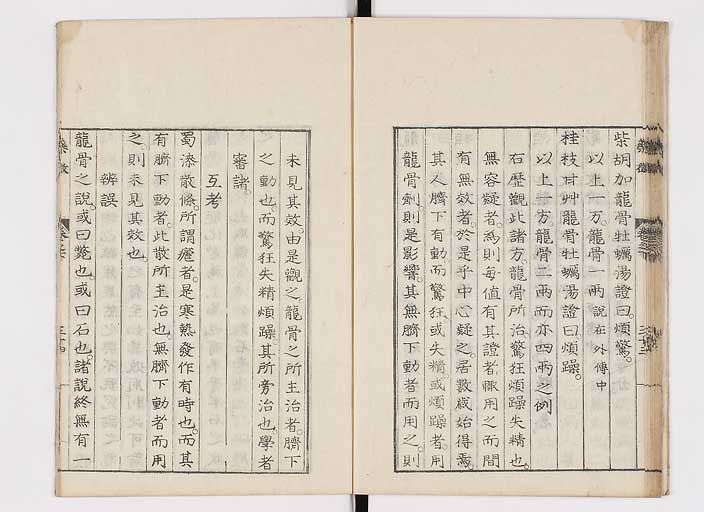 柴胡加龍骨牡蠣湯證曰。煩驚。
以上一方。龍骨一兩。説在外傳中
桂枝甘艸龍骨牡蠣湯證曰煩躁。
以上一方。龍骨二兩而亦四兩之例
右歷觀此諸方。龍骨所治。驚狂煩躁失精也。
無容疑者。爲則每值有其證者。輙用之而間
有無效者。於是乎中心疑之。居數歲始得焉。
其人臍下有動而驚狂。或失精或煩躁者。用
龍骨劑。則是影響。其無臍下動者而用之。則
未見其效。由是觀之。龍骨之所主治者。臍下
之動也。而驚狂失精煩躁。其所旁治也。學者
審諸。
互考
蜀漆散條。所謂瘧者。是寒熱發作有時也。而其
有臍下動者。此散所主治也。無臍下動者而用
之。則未見其效也
辨誤
龍骨之說。或曰斃也。或曰石也。諸說終無有一
藥徵
卷之下
三十三
三十四